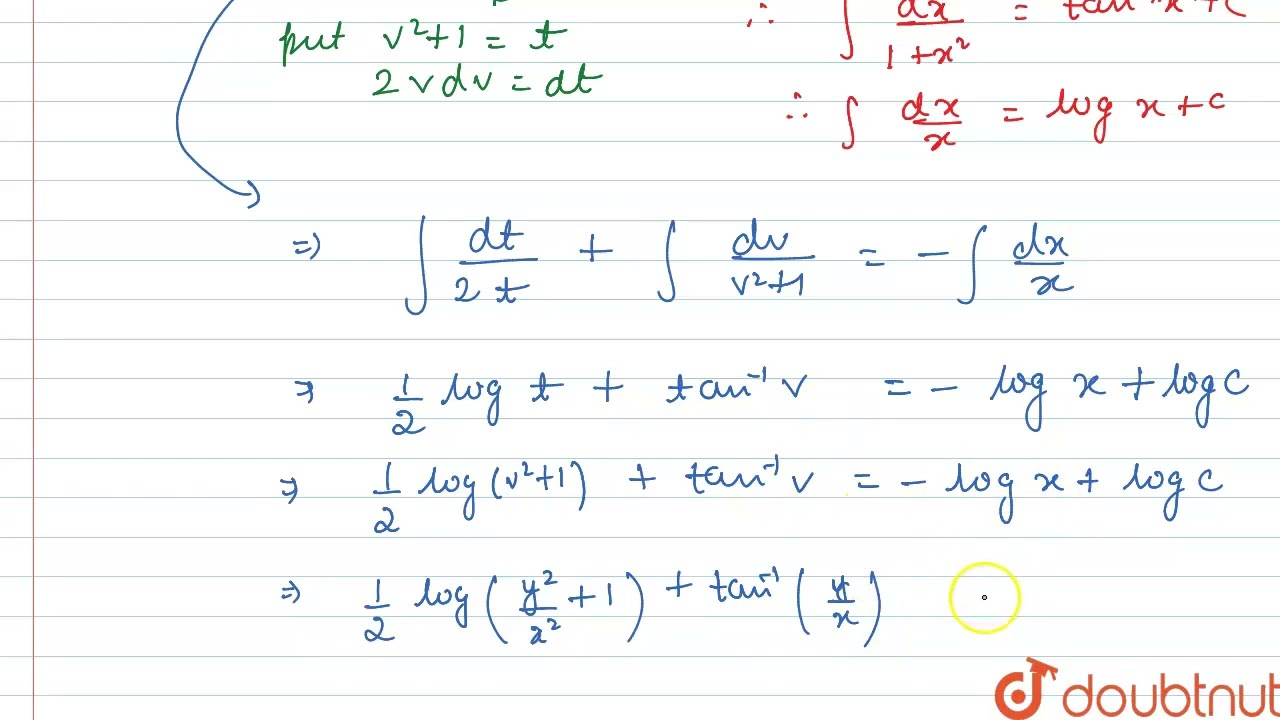 ∴ ∫ dx/(1+x²) = tan⁻¹x+C
put v²+1 = t
2vdv = dt
∴ ∫ dx/x = log x+c
=> ∫ dt/2t + ∫ dv/(v²+1) = - ∫ dx/x
=> 1/2 log t + tan⁻¹ v = - log x + log C
=> 1/2 log (v²+1) + tan⁻¹ v = - log x + log C
=> 1/2 log (y²/x² + 1) + tan⁻¹ (y/x)
doubtnut